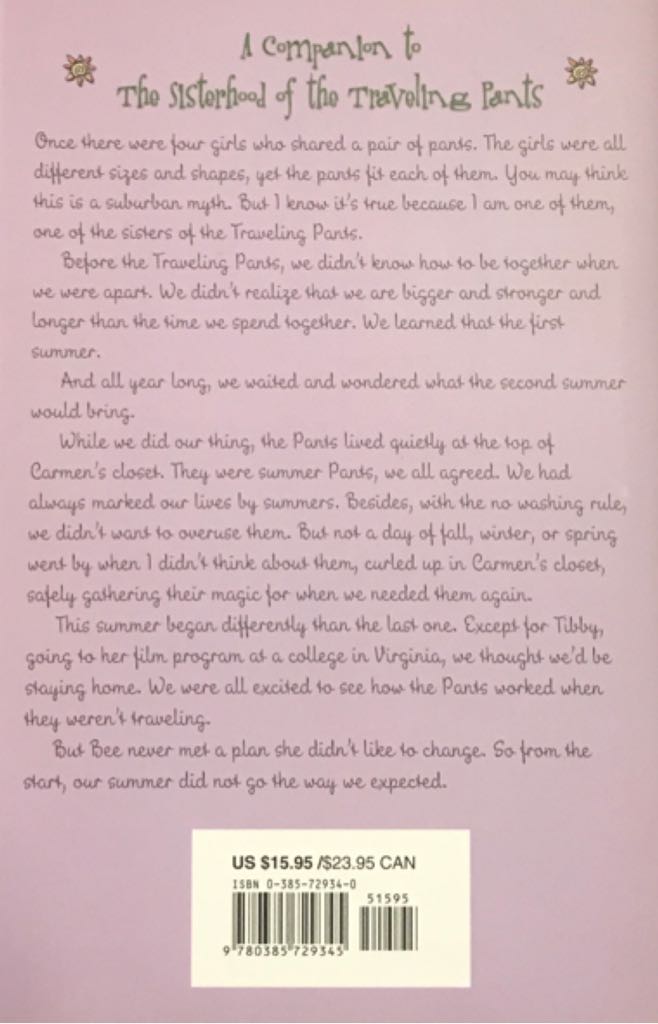 A Companion to
The Sisterhood of the Traveling Pants
Once there were four girls who shared a pair of pants. The girls were all
different sizes and shapes, yet the pants fit each of them. You may think
this is a suburban myth. But I know it's true because I am one of them,
one of the sisters of the Traveling Pants.
Before the Traveling Pants, we didn't know how to be together when
we were apart. We didn't realize that we are bigger and stronger and
longer than the time we spend together. We learned that the first
summer.
And all year long, we waited and wondered what the second summer
would bring.
While we did our thing, the Pants lived quietly at the top of
Carmen's closet. They were summer Pants, we all agreed. We had
always marked our lives by summers. Besides, with the no washing rule,
we didn't want to overuse them. But not a day of fall, winter, or spring
went by when I didn't think about them, curled up in Carmen's closet,
safely gathering their magic for when we needed them again.
This summer began differently than the last one. Except for Tibby,
going to her film program at a college in Virginia, we thought we'd be
staying home. We were all excited to see how the Pants worked when
they weren't traveling.
But Bee never met a plan she didn't like to change. So from the
start, our summer did not go the way we expected.
US $15.95 /$23.95 CAN
ISBN 0-385-72934-0
51595
9 780385 729345